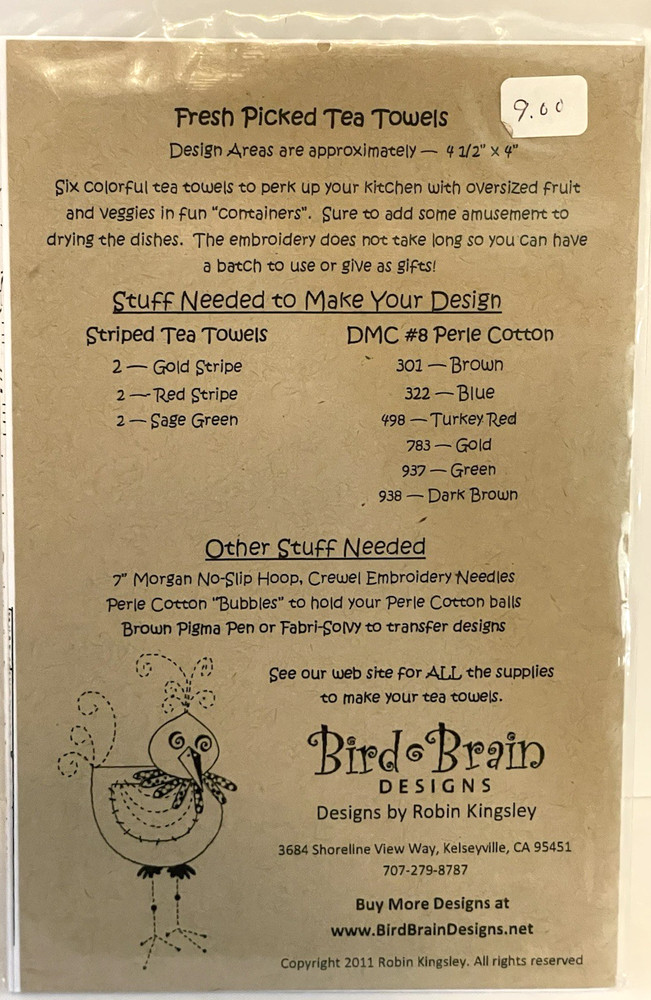 9.00
Fresh Picked Tea Towels
Design Areas are approximately — 4 1/2" x 4"
Six colorful tea towels to perk up your kitchen with oversized fruit
and veggies in fun "containers". Sure to add some amusement to
drying the dishes. The embroidery does not take long so you can have
a batch to use or give as gifts!
Stuff Needed to Make Your Design
Striped Tea Towels
2 — Gold Stripe
2 — Red Stripe
2 — Sage Green
DMC #8 Perle Cotton
301 — Brown
322 — Blue
498 — Turkey Red
783 — Gold
937 — Green
938 — Dark Brown
Other Stuff Needed
7" Morgan No-Slip Hoop, Crewel Embroidery Needles
Perle Cotton "Bubbles" to hold your Perle Cotton balls
Brown Pigma Pen or Fabri-Solvy to transfer designs
See our web site for ALL the supplies
to make your tea towels.
Bird Brain
DESIGNS
Designs by Robin Kingsley
3684 Shoreline View Way, Kelseyville, CA 95451
707-279-8787
Buy More Designs at
www.BirdBrainDesigns.net
Copyright 2011 Robin Kingsley. All rights reserved